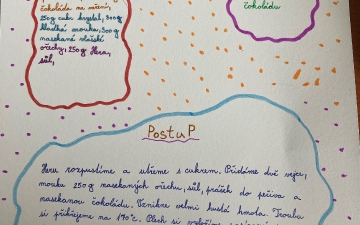 čokoláda na vaření,
250g cukr krystal, 300g
hladká mouka, 300g
nasekané vlašské
ořechy, 250g Hera,
sůl,
čokoládu
PostuP
Heru rozpustíme a utřeme s cukrem. Přidáme dvě vejce,
mouku 250g nasekaných ořechu, sůl, prášek do pečiva a
nasekanou čokoládu. Vznikne velmi hustá hmota. Troubu
si přihřejeme na 170°C. Plech si vyložíme